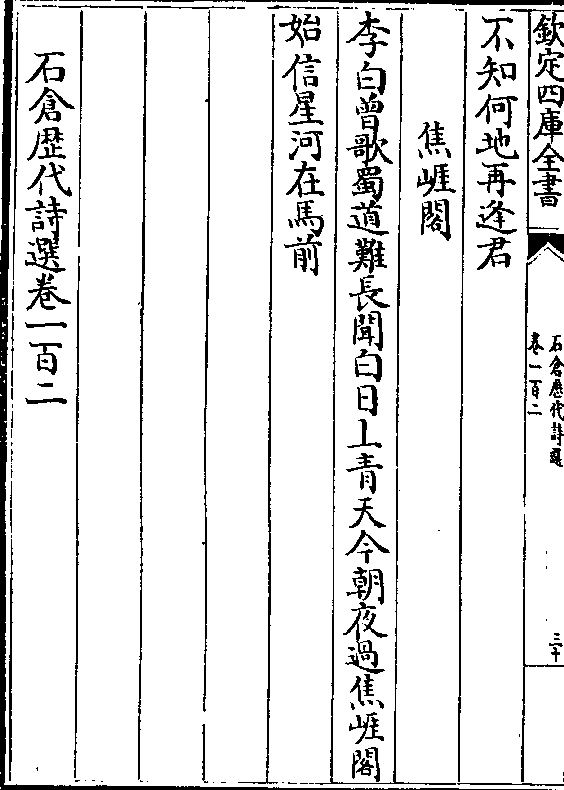 欽定四庫全書
石倉歴代詩選
卷一百二
三十
不知何地再逢君
焦崕閣
李白曽歌蜀道難長聞白日上青天今朝夜過焦崕閣
始信星河在馬前
石倉歴代詩選卷一百二